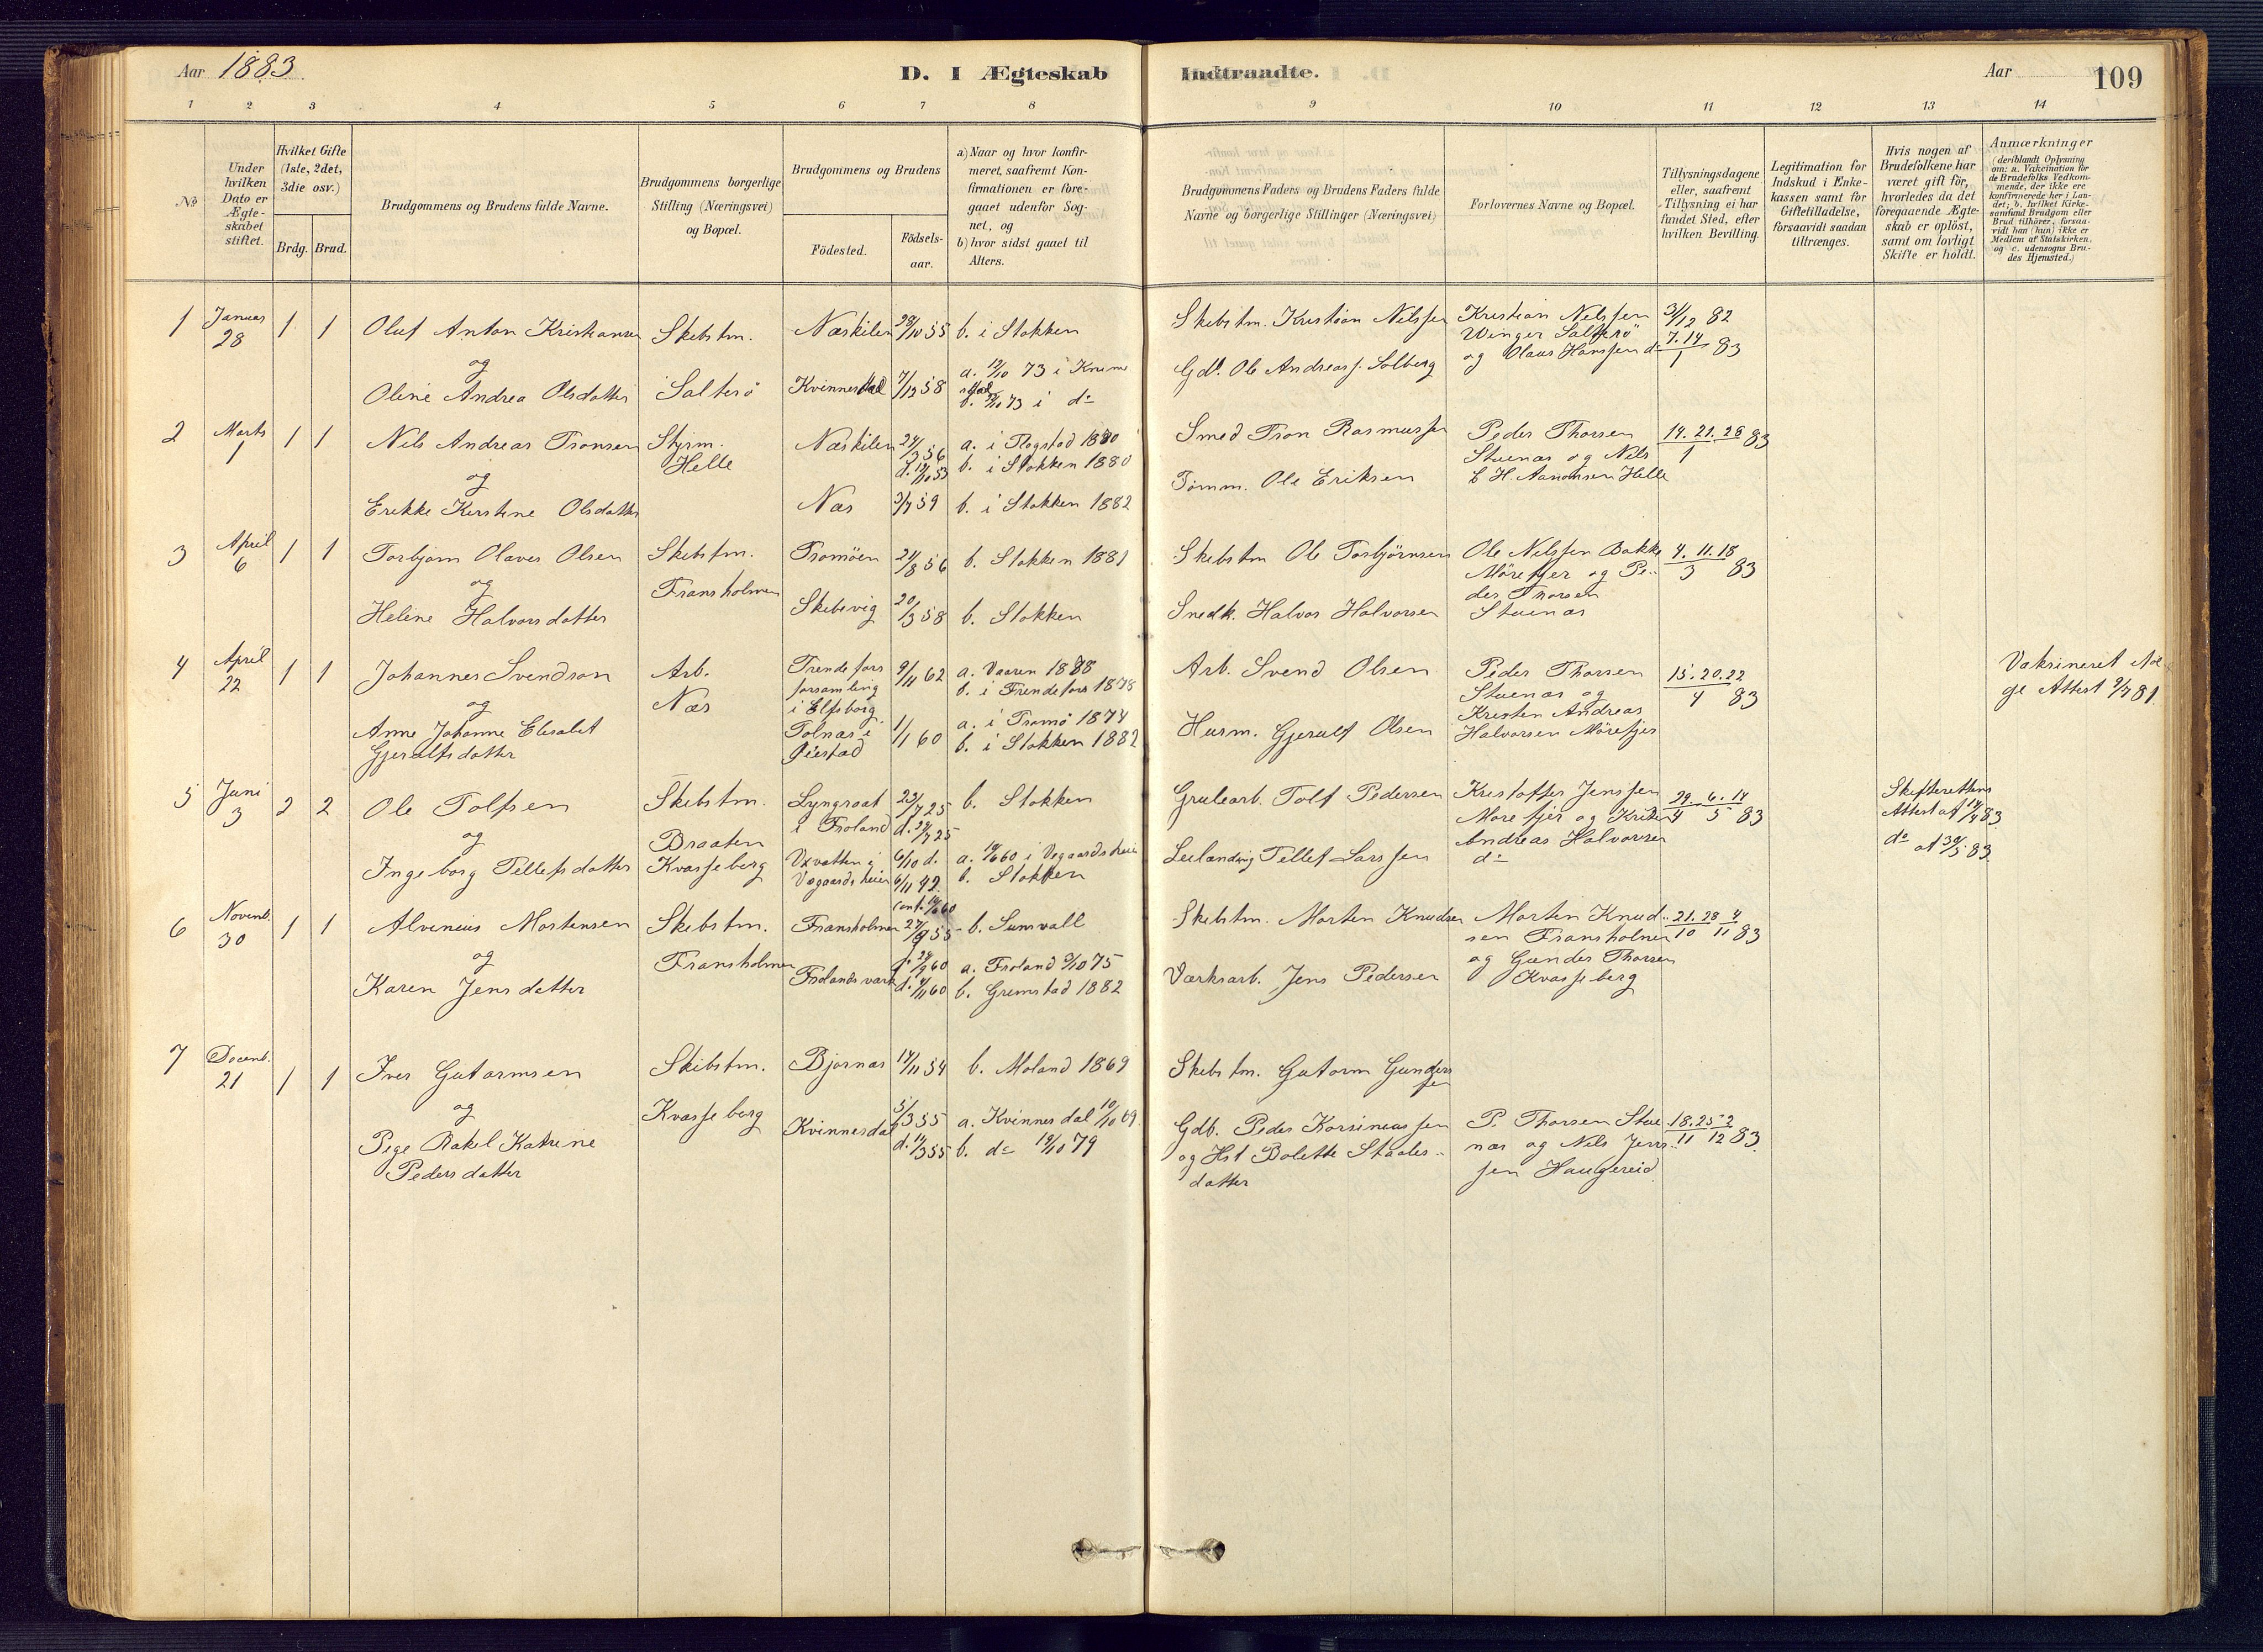 Aar 1883.
D. I Ægteskab Indtraadte.
Aar
109
1 2 3 4 5 6 7 8 9 10 11 12 13 14
No
Under hvilken Dato er Ægteskabet stiftet.
Hvilket Gifte (1ste, 2det, 3die osv.)
Brdg. Brud.
Brudgommens og Brudens fulde Navne.
Brudgommens borgerlige Stilling (Næringsvei) og Bopæl.
Brudgommens og Brudens
Födested.
Födsels-aar.
a) Naar og hvor konfirmeret, saafremt Konfirmationen er foregaaet udenfor Sognet, og
b) hvor sidst gaaet til Alters.
Brudgommens Faders og Brudens Faders fulde Navne og borgerlige Stillinger (Næringsvei)
Forlovernes Navne og Bopæl.
Tillysningsdagene eller, saafremt Tillysning ei har fundet Sted, efter hvilken Bevilling.
Legitimation for Indskud i Enkekassen samt for Giftetilladelse, forsaavidt saadan tiltrænges.
Hvis nogen af Brudefolkene har været gift för, hvorledes da det foregaaende Ægteskab er oplöst, samt om lovligt Skifte er holdt.
Anmærkninger (deriblandt Oplysning om: a. Vakcination for de Brudefolks Vedkommende, der ikke ere konfirmerede her i Landet; b. hvilket Kirkesamfund Brudgom eller Brud tilhörer, forsaavidt han (hun) ikke er Medlem af Statskirken, og c. udensogns Brudes Hjemsted.)
1 Januar 28 1 1
Oluf Anton Kristiansen
og
Oline Andrea Olsdatter
Skibstm.
Salterö
Næskilen 28/10 55 b. i Stokken
Kvinnesdal 7/12 58 a. 12/10 73 i Kvinnesdal
b. 73 i do
Skibstm. Kristian Nilssen
Gdb. Ole Andreass. Solberg
Kristian Nilssen
Winger Salterö
og Olaus Hanssen do
31/12 82
7.14/1 83
2 Marts 1 1 1
Nils Andreas Tronsen
og
Erikke Kirstine Olsdatter
Styrm.
Helle
Næskilen 24/3 56
a. i Flogstad 1880
b. i Stokken 1880
Næs 3/7 59 b. i Stokken 1882
Smed Tron Rasmussen
Tømm. Ole Eriksen
Peder Thorsen
Stuenæs og Nils
H. Aanonsen Helle
14. 21. 28/1 83
3 April 6 1 1
Torbjørn Olaves Olsen
og
Heline Halvorsdatter
Skibstm.
Fransholmen
Tromöen 24/8 56 b. Stokken 1881
Skibsvig 20/3 58 b. Stokken
Skibstm Ole Torbjörnsen
Snedk. Halvor Halvorsen
Ole Nilssen Bakke
Mörefjer og Pe-
der Thorsen
Stuenæs
4. 11. 18/3 83
4 April 22 1 1
Johannes Svendson
og
Anne Johanne Elisabet
Gjerulfsdatter
Arb.
Næs
forsamling
i Elfsborg
9/11 62
a. Vaaren 1878
b. i Frendefors 1878
Tolnæs i
Øiestad
1/1 60
a. i Tromø 1874
b. i Stokken 1882
Arb. Svend Olsen
Husm. Gjerulf Olsen
Peder Thorsen
Stuenæs og
Kristen Andreas
Halvorsen Mörefjer
15. 20. 22/4 83
Vaksineret iföl-
ge Attest 9/7 81
5 Juni 3 2 2
Ole Tolfsen
og
Ingeborg Tellefsdatter
Skibstm.
Braaten
Kvasseberg
i Froland
23/7 25
b. Stokken
Uxvatten i
Vegaardsheien
6/10 d.
6/11 42.
a. 14/6 60 i Vegaardsheien
b. Stokken
Grubearb. Tolf Pedersen
Leilænding Tellef Larssen
Kristoffer Jenssen
Mørefjer og Kristen
Andreas Halvorsen
do
29/4 6. 14/5 83
Skifterettens
Attest af 14/4 83
do af 30/5 83
6 Novemb. 30 1 1
Alvenius Mortensen
og
Karen Jensdatter
Skibstm.
Fransholmen
Fransholmen 27/9 55 b. Sunsvall
Frolands værk f. 24/9 60
d. 4/11 60
a. Froland 3/10 75
b. Grimstad 1882
Skibstm. Morten Knudsen
Værksarb. Jens Pedersen
Morten Knud-
sen Fransholmen
og Gunder Thorsen
Kvasseberg
21. 28/10 4/11 83
7 Decemb. 21 1 1
Iver Gutormsen
og
Pege Rakel Katrine
Pedersdatter
Skibstm.
Kvasseberg
Bjornæs 17/11 54 b. Moland 1869
Kvinnesdal 5/3 55
d. 11/3 55
a. Kvinnesdal 10/10 69
b. do 19/10 79
Skibstm. Gutorm Gunders-
sen
Gdb. Peder Korsineussen
og Hst Bolette Staales-
datter
P. Thorsen Stue
næs og Nils Jens-
sen Haugereid
18. 25/11 2/12 83